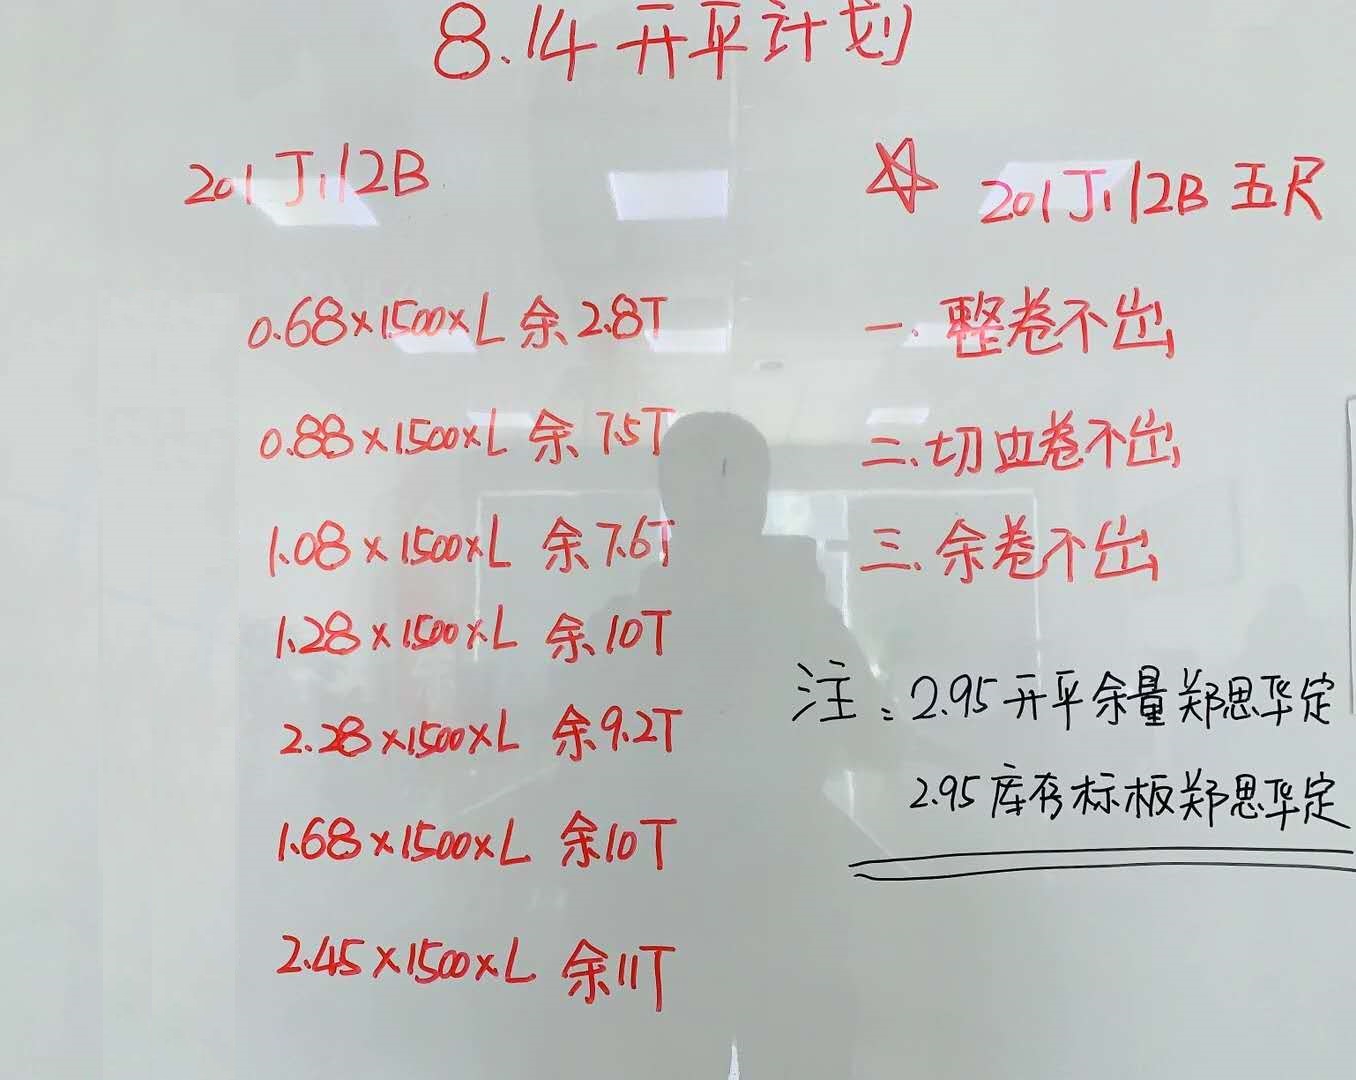 8.14 开平计划
201J1/2B
0.68×1500×L 余2.8T
0.88×1500×L 余7.5T
1.08×1500×L 余7.6T
1.28×1500×L 余10T
2.28×1500×L 余9.2T
1.68×1500×L 余10T
2.45×1500×L 余11T
☆ 201J1/2B 五尺
一.整卷不出
二.切边卷不出
三.余卷不出
注：2.95开平余量郑思华定
2.95库存标板郑思华定